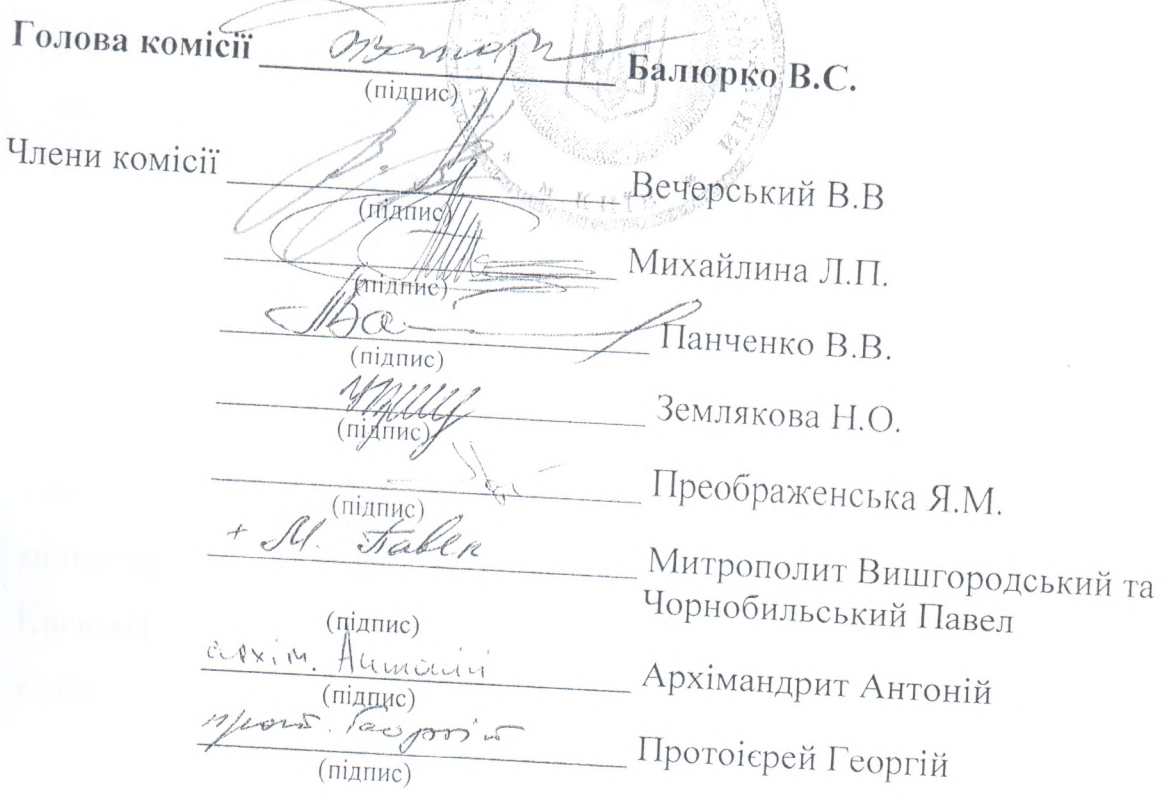 Голова комісії Балюрко В.С.
(підпис)
Члени комісії Вечерський В.В
(підпис)
Михайлина Л.П.
(підпис)
Панченко В.В.
(підпис)
Землякова Н.О.
(підпис)
Преображенська Я.М.
(підпис)
+ М. Павел Митрополит Вишгородський та
Чорнобильський Павел
(підпис)
архім. Антоній Архімандрит Антоній
(підпис)
прот. Георгій Протоієрей Георгій
(підпис)